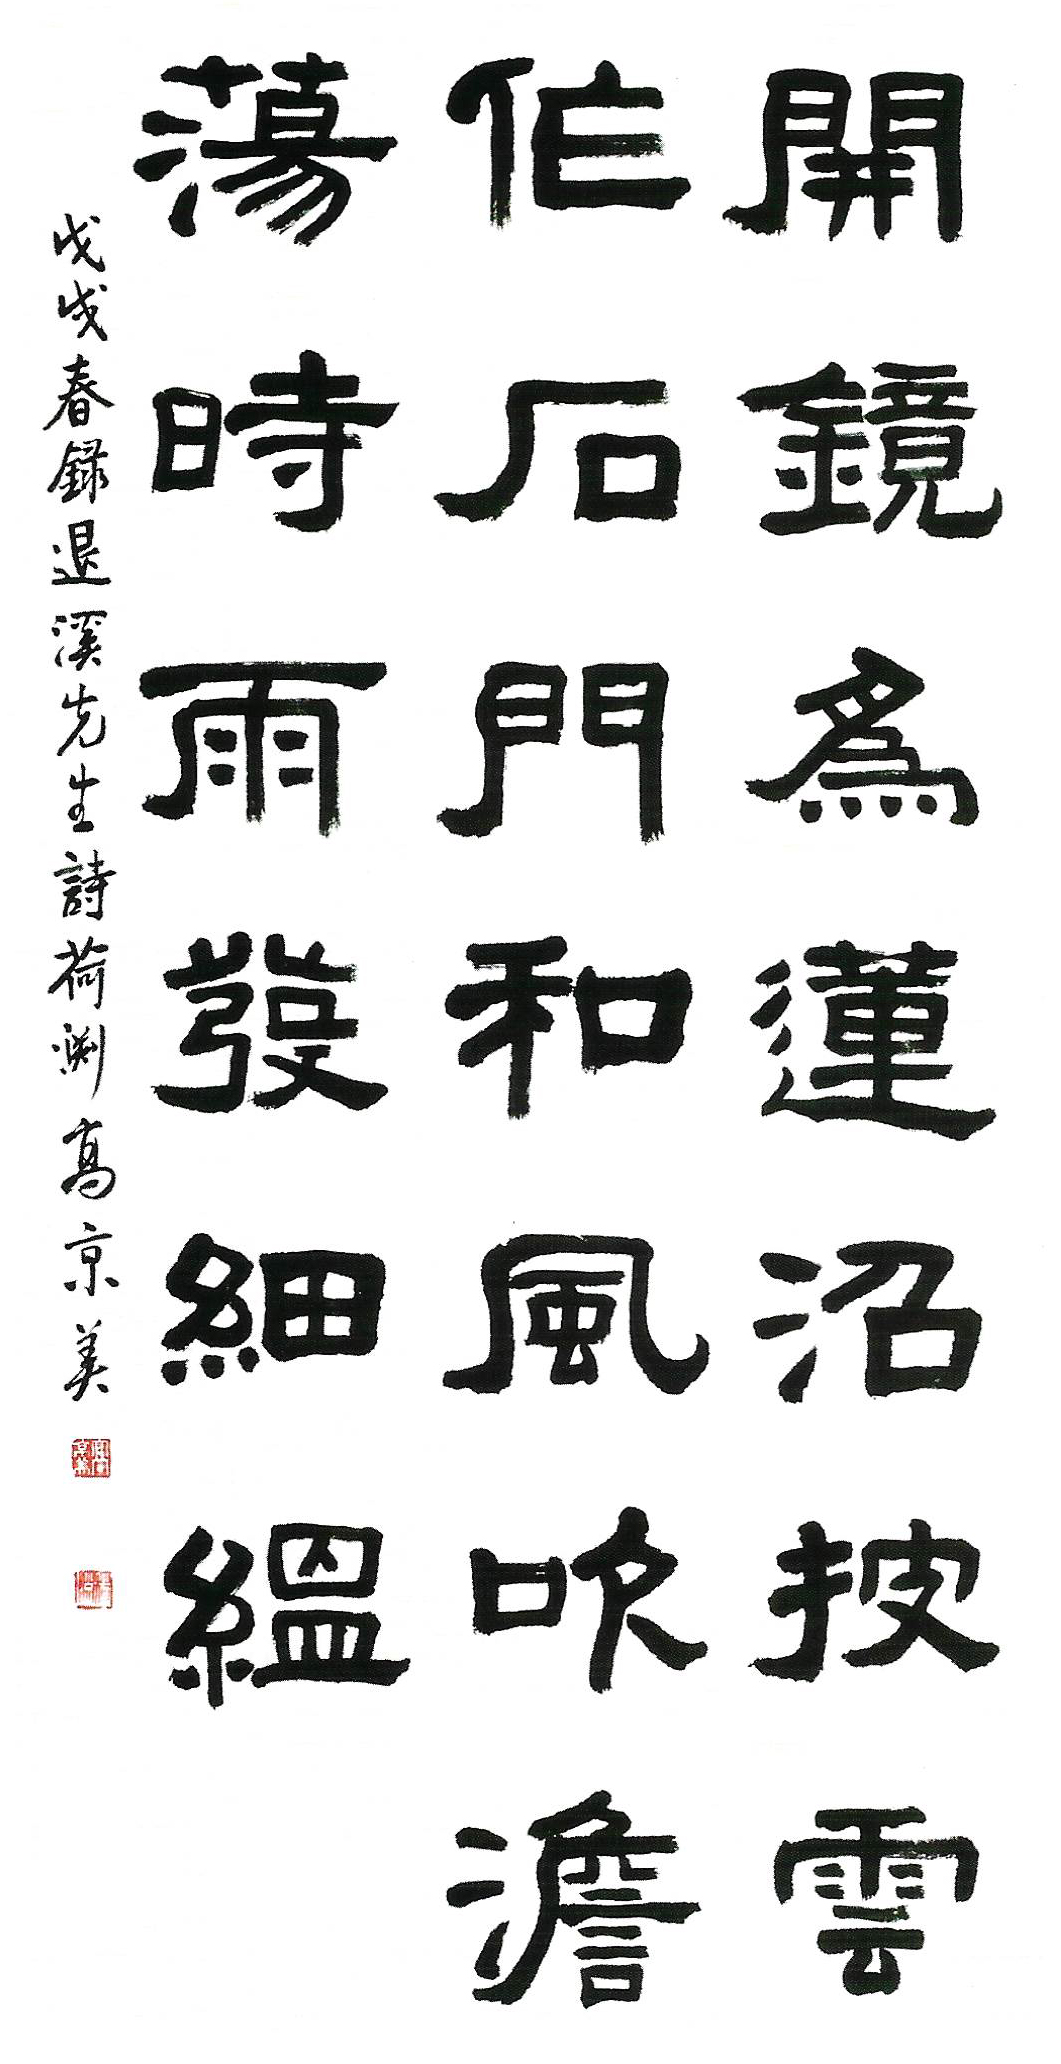 開鏡為蓮沼披雲
作石門和風吹澹
蕩時雨發細縕
戊戌春録退溪先生詩荷渊高京美